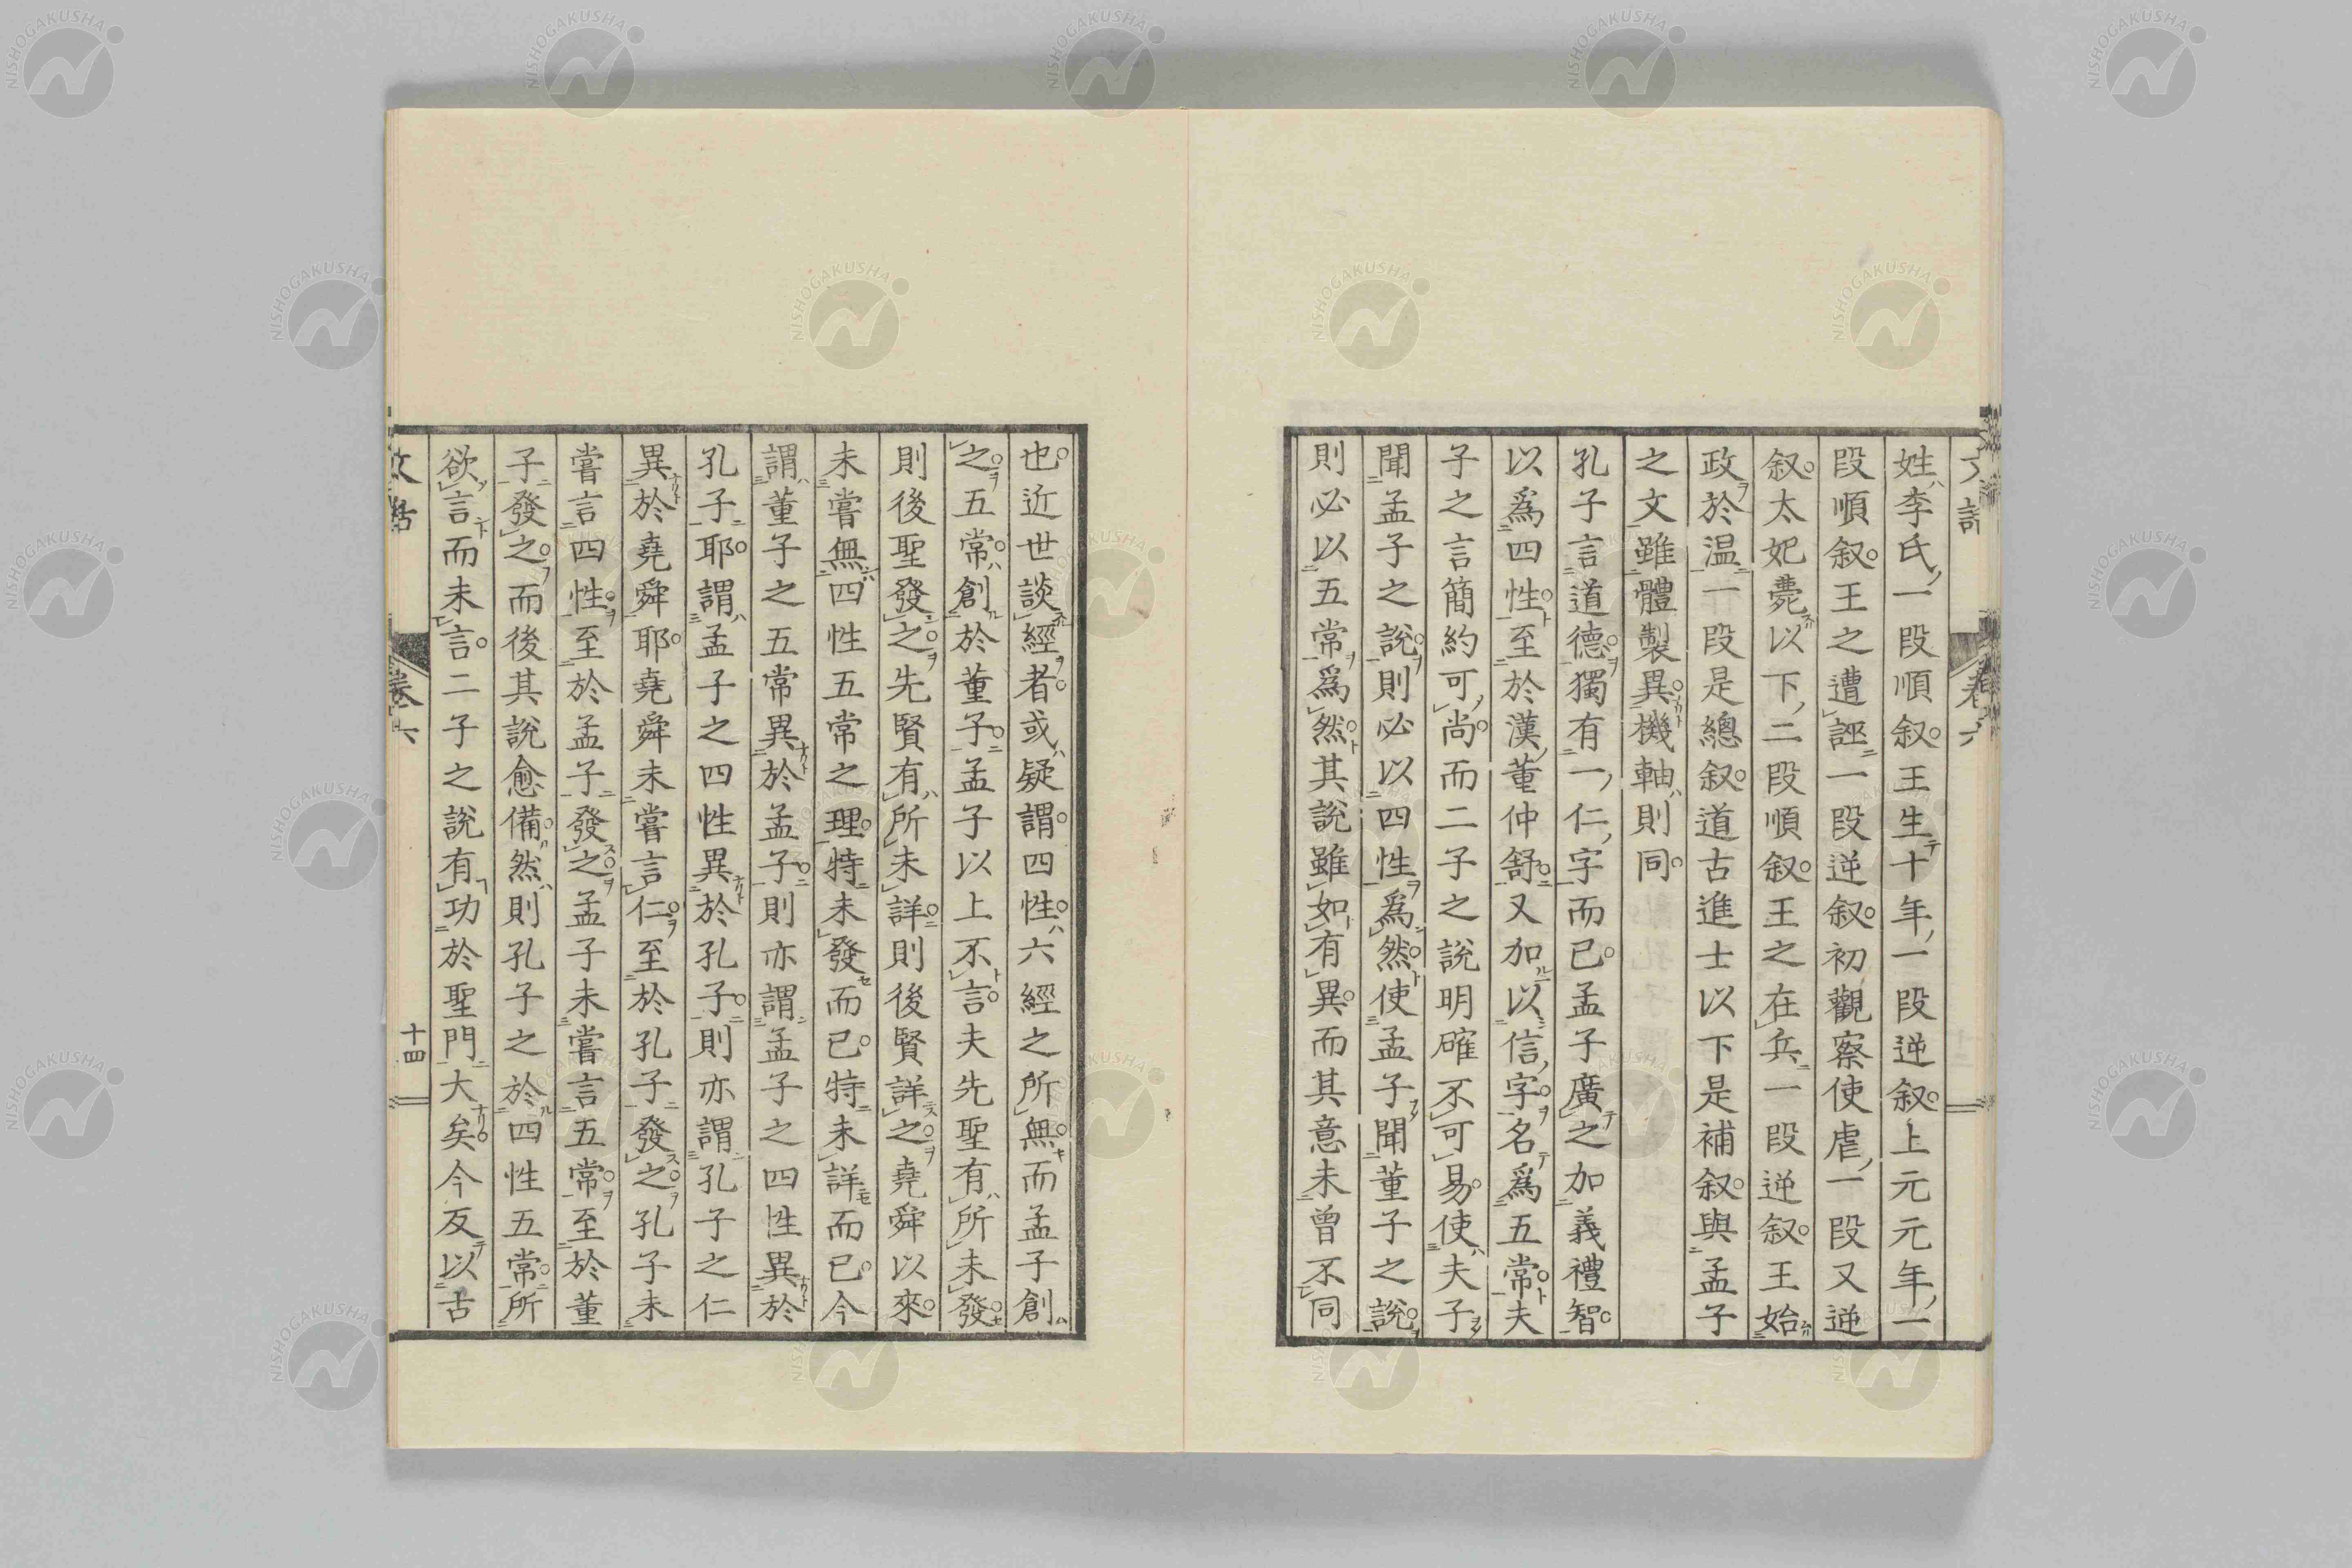 姓李氏一段順叙王生十年一段逆叙上元元年一
段順叙王之遭誣一段逆叙初觀察使虐一段又逆
叙太妃薨以下二段順叙王之在兵一段逆叙王始
政於温一段是總叙道古進士以下是補叙與孟子
之文雖體製異機軸則同
孔子言道德獨有一仁字而已孟子廣之加義禮智
以爲四性至於漢董仲舒又加以信字名爲五常夫
子之言簡約可尚而二子之說明確不可易使夫子
聞孟子之說則必以四性爲然使孟子聞董子之說
則必以五常爲然其說雖如有異而其意未曾不同
也近世談經者或疑謂四性六經之所無而孟子創
之五常創於董子孟子以上不言夫先聖有所未發
則後聖發之先賢有所未詳則後賢詳之堯舜以來
未嘗無四性五常之理特未發而已特未詳而已今
謂董子之五常異於孟子則亦謂孟子之四性異於
孔子耶謂孟子之四性異於孔子則亦謂孔子之仁
異於堯舜耶堯舜未嘗言仁至於孔子發之孔子未
嘗言四性至於孟子發之孟子未嘗言五常至於董
子發之而後其說愈備然則孔子之於四性五常所
欲言而未言二子之說有功於聖門大矣今反以古
卷六
十四
NISHOGAKUSHA